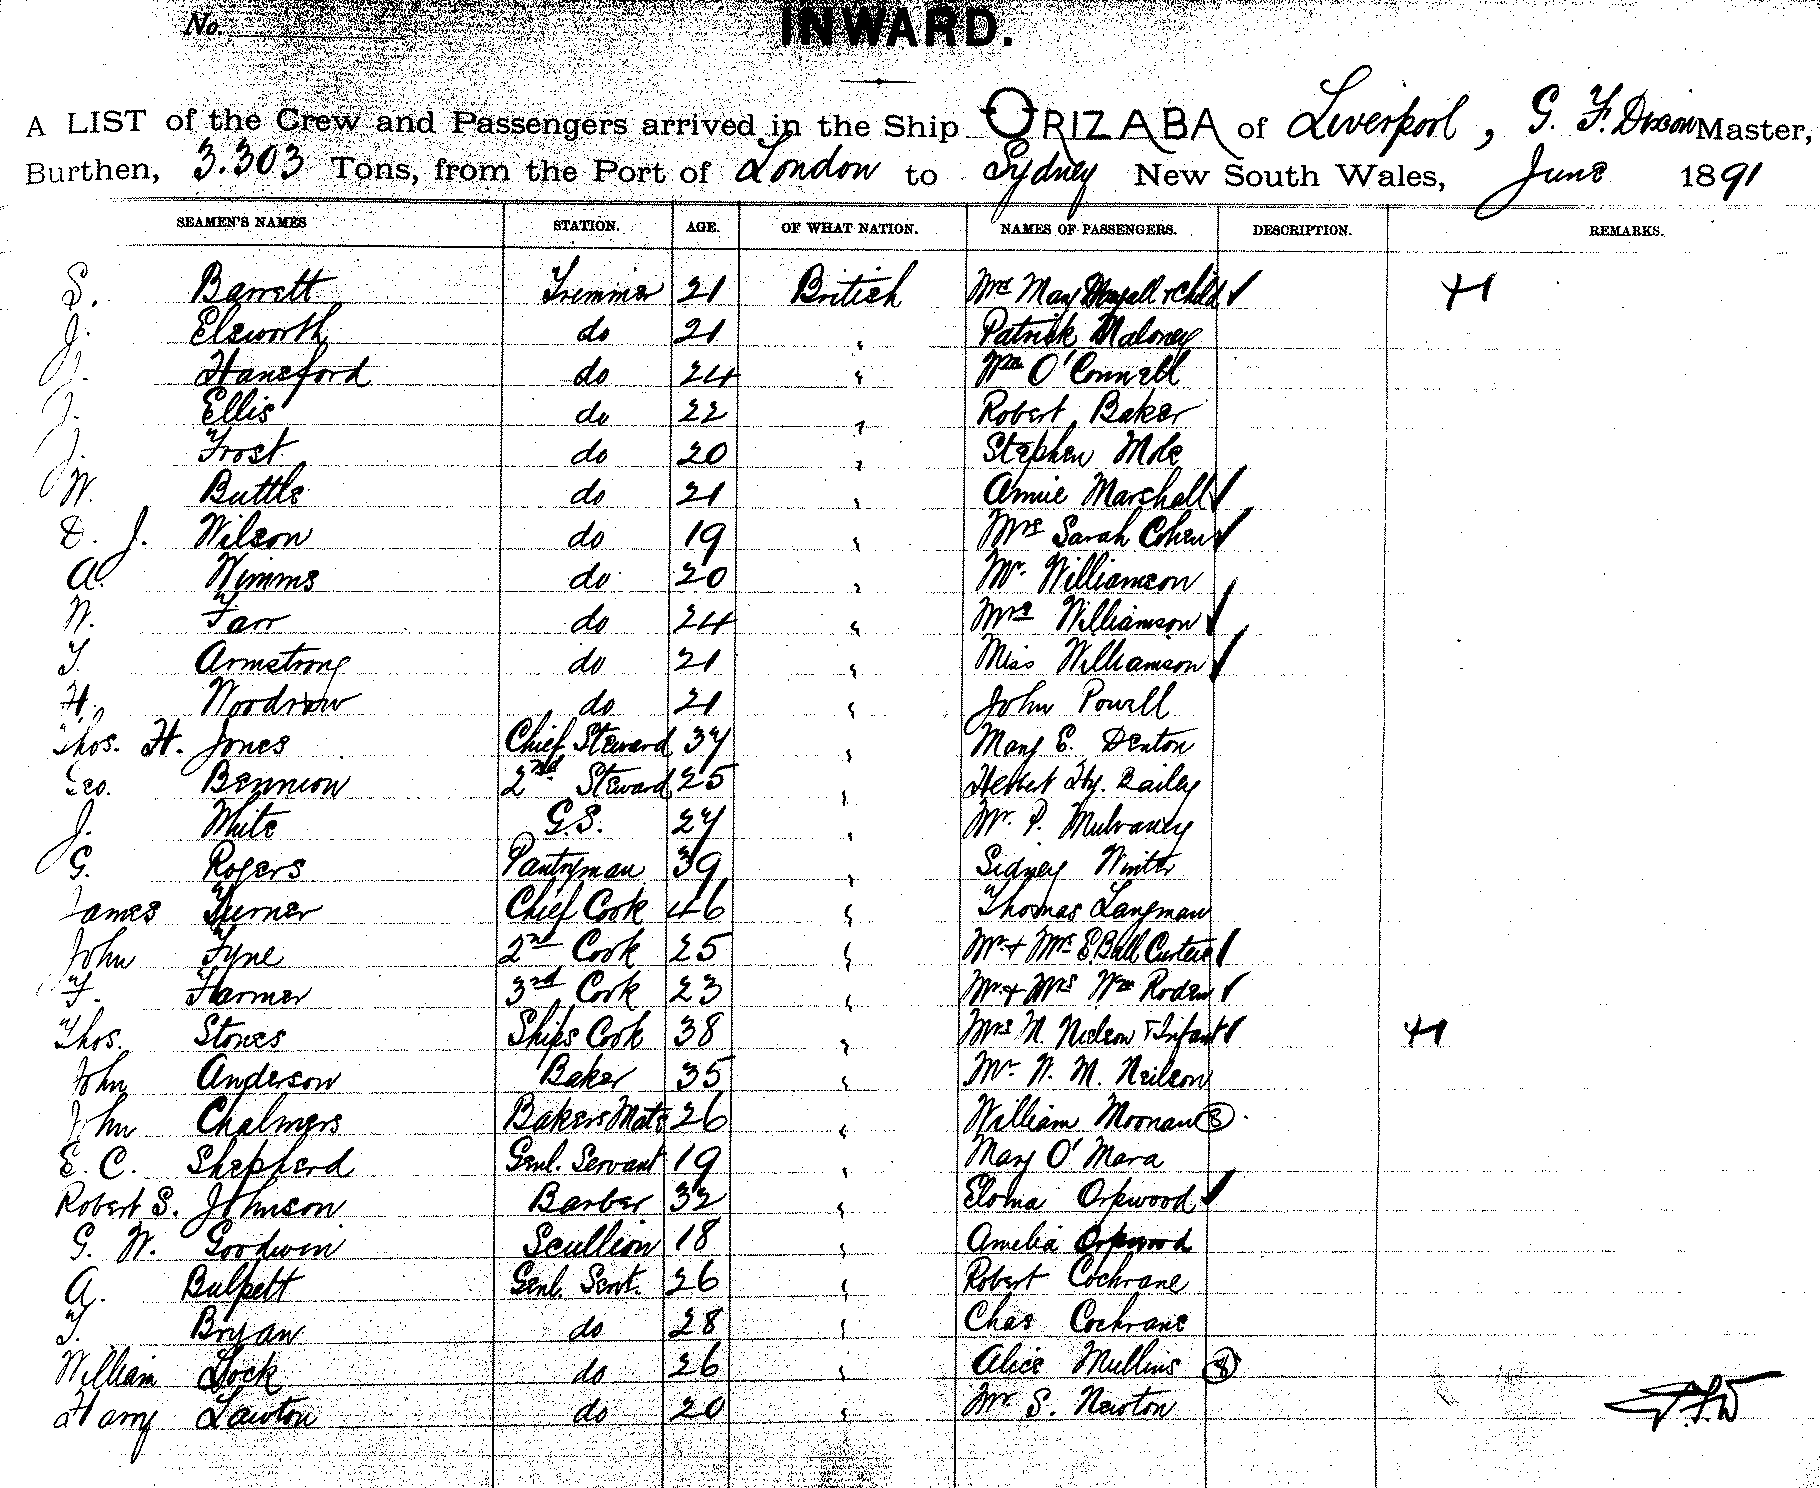 No.
INWARD.
A LIST of the Crew and Passengers arrived in the Ship ORIZABA of Liverpool, G. F. Dixon Master,
Burthen, 3.303 Tons, from the Port of London to Sydney New South Wales, June 1891
SEAMEN'S NAMES STATION. AGE. OF WHAT NATION. NAMES OF PASSENGERS. DESCRIPTION. REMARKS.
S. Barrett Trimmer 21 British Mrs May & child ✓
J. Elsworth do 21 " Patrick Maloney
J. Hansford do 24 " Wm O'Connell
J. Ellis do 22 " Robert Baker
J. Frost do 20 " Stephen Mole
W. Buttle do 21 " Annie Marshall ✓
D. J. Wilson do 19 " Mrs Sarah Cohen ✓
A. Wimms do 20 " Mr. Williamson
W. Farr do 24 " Mrs Williamson ✓
T. Armstrong do 21 " Miss Williamson ✓
H. Woodrow do 21 " John Powell
Thos. H. Jones Chief Steward 37 " Mary E. Denton
Geo. Bennion 2nd Steward 25 " Herbert Hy. Bailey
J. White G.S. 27 " Mr. P. Mulvaney
G. Rogers Pantryman 39 " Sidney Winter
James Turner Chief Cook 46 " Thomas Langman
John Tyne 2nd Cook 25 " Mr & Mrs E. Ball Curteis ✓
F. Farmer 3rd Cook 23 " Mr & Mrs Wm Roden ✓
Thos. Stones Ships Cook 38 " Mrs N. Nielson & Infant ✓
John Anderson Baker 35 " Mr. W. M. Neilson
John Chalmers Bakers Mate 26 " William Moonan
E. C. Shepherd Genl. Servant 19 " Mary O'Mara
Robert S. Johnson Barber 32 " Orpwood ✓
G. W. Goodwin Scullion 18 " Amelia Orpwood
A. Bulpett Genl. Servt. 26 " Robert Cochrane
T. Bryan do 28 " Chas Cochrane
William Dock do 26 " Alice Mullins
Harry Lawton do 20 " Mr S. Newton